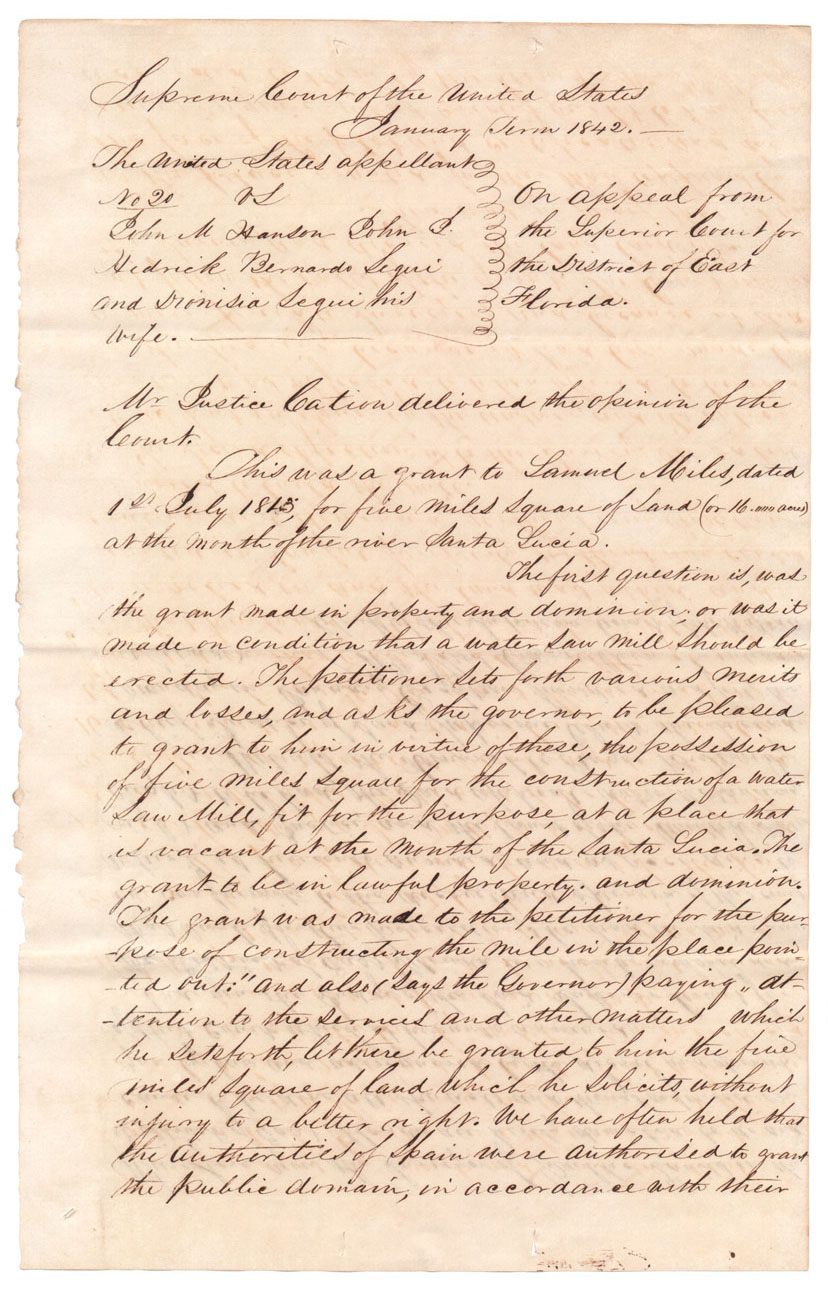 Supreme Court of the United States
January Term 1842. —
The United States appellant
No 20 vs
John M Hanson John P.
Hedrick Bernardo Segui
and Dionisia Segui his
wife. —
On appeal from
the Superior Court for
the District of East
Florida.
Mr Justice Cation delivered the opinion of the
Court.
This was a grant to Samuel Miles, dated
1st July 1813, for five miles square of Land (or 16.000 acres)
at the mouth of the river Santa Lucia.
The first question is, was
the grant made in property and dominion; or was it
made on condition that a water saw mill should be
erected. The petitioner sets forth various merits
and losses, and asks the governor, to be pleased
to grant to him in virtue of these, the possession
of five miles square for the construction of a water
Saw Mill, fit for the purpose, at a place that
is vacant at the mouth of the Santa Lucia. The
grant to be in lawful property. and dominion.
The grant was made to the petitioner for the pur-
-pose of constructing the mile in the place poin-
-ted out:" and also (says the Governor) paying „ at-
-tention to the services and other matters which
he sets forth, let there be granted to him the five
miles square of land which he solicits, without
injury to a better right. We have often held that
the authorities of Spain were authorised to grant
the public domain, in accordance with their